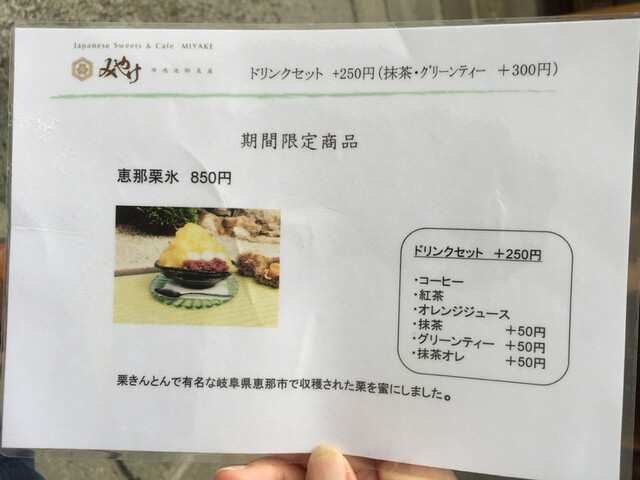 Japanese Sweets & Cafe MIYAKE
みやけ
ドリンクセット +250円(抹茶・グリーンティー +300円)
期間限定商品
恵那栗氷 850円
ドリンクセット +250円
・コーヒー
・紅茶
・オレンジジュース
・抹茶 +50円
・グリーンティー +50円
・抹茶オレ +50円
栗きんとんで有名な岐阜県恵那市で収穫された栗を蜜にしました。